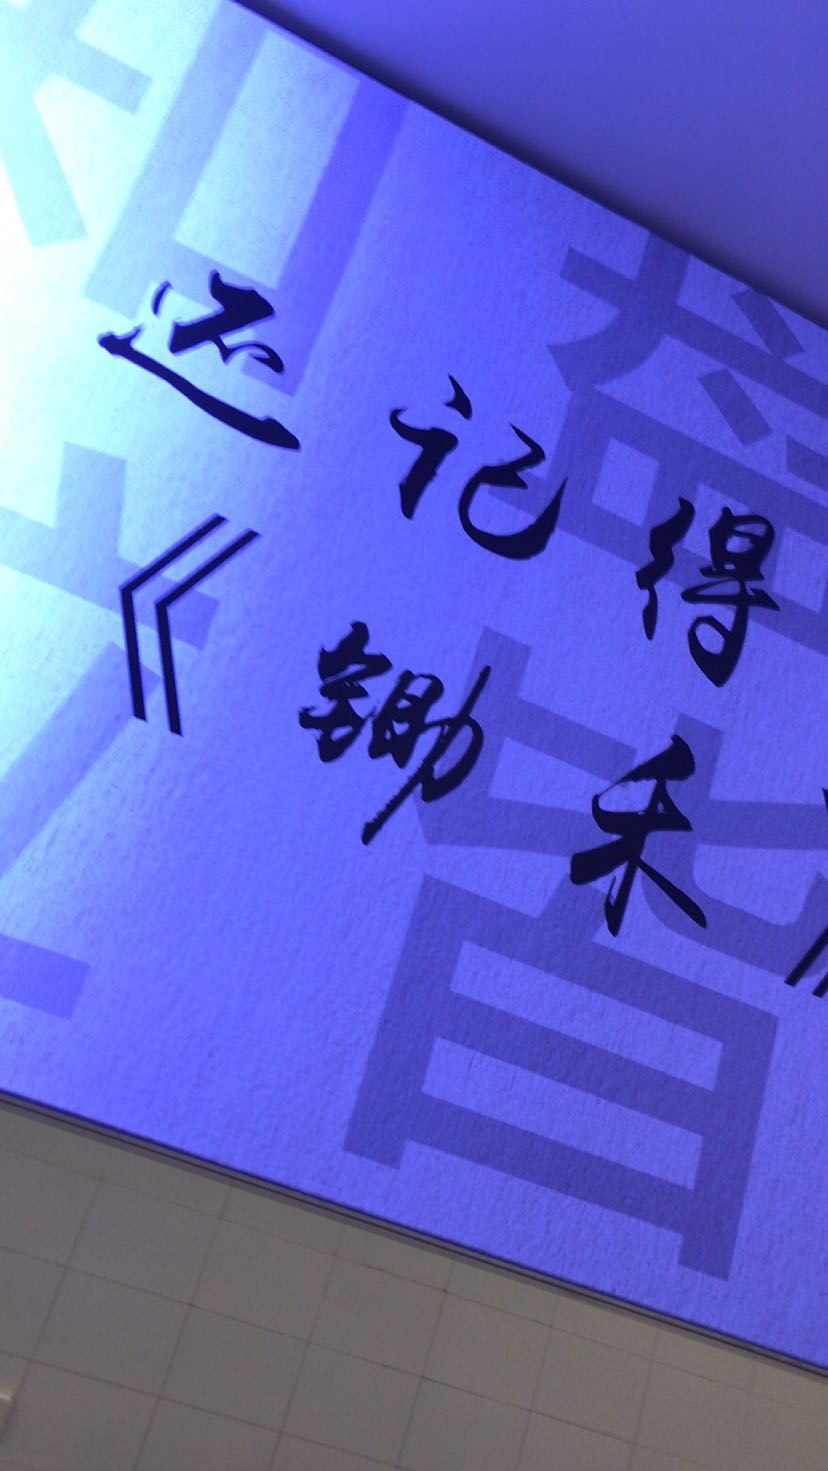 还记得
《锄禾》